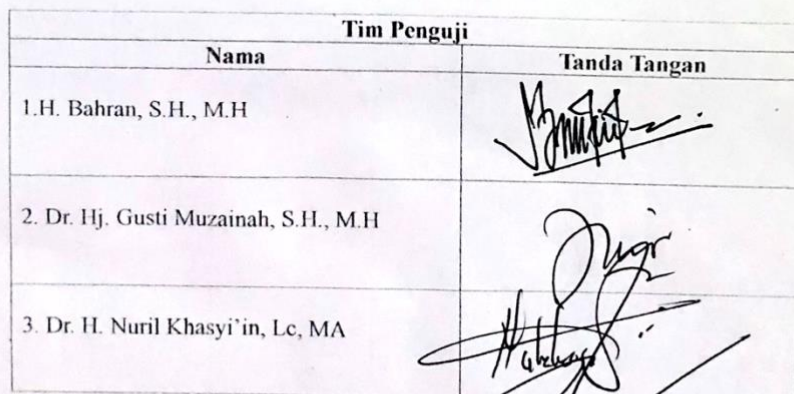 Tim Penguji
Nama Tanda Tangan
1.H. Bahran, S.H., M.H
2. Dr. Hj. Gusti Muzainah, S.H., M.H
3. Dr. H. Nuril Khasyi’in, Lc, MA